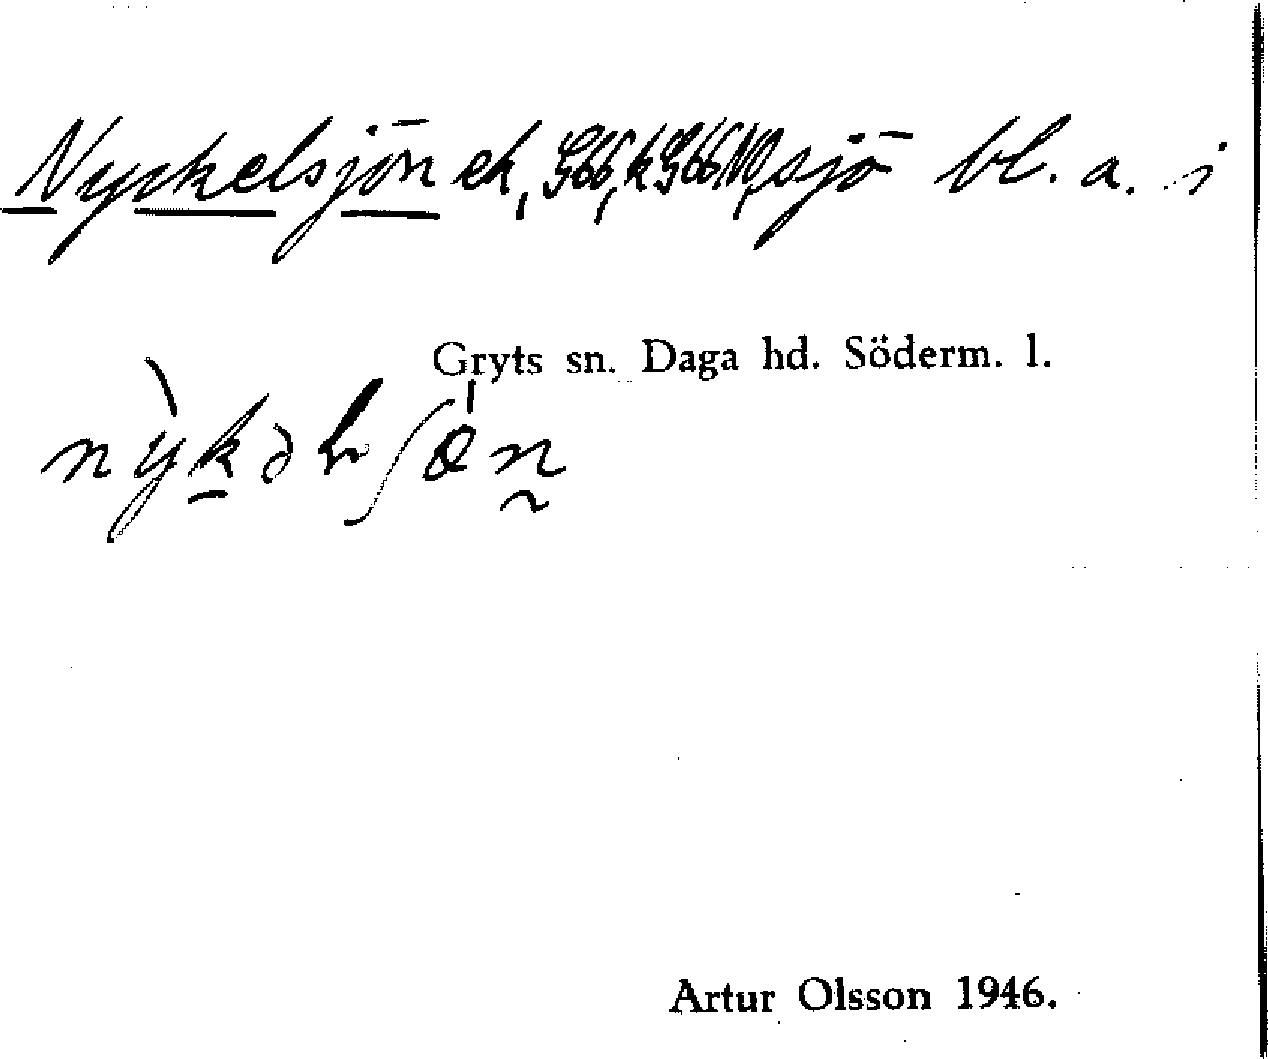 Nyckelsjön ek, sjö bl. a. i
Gryts sn. Daga hd. Söderm. l.
Artur Olsson 1946.